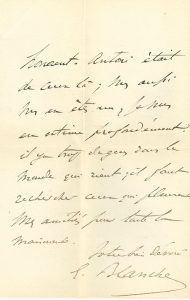 Antoni était
de ceux là ; Vous aussi
Vous en êtes un, je vous
en estime profondément
il y a trop de gens dans le
monde qui rient ; il faut
rechercher ceux qui pleurent
Mes amitiés pour toute la
Votre bien dévoué
E. Blanche